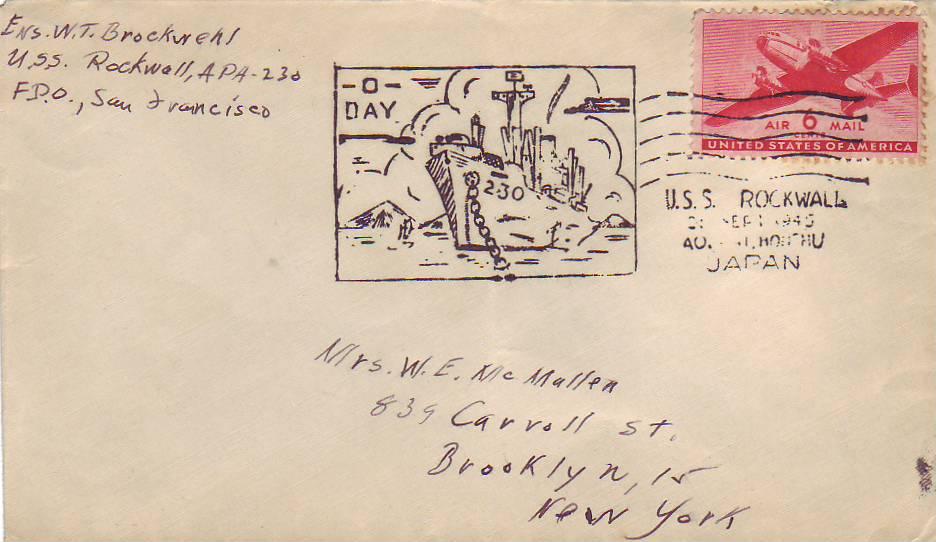 Ens. W.T. Brockwehl
U.S.S. Rockwall, APA-230
F.P.O., San Francisco
-O-
DAY
230
AIR 6 MAIL
CENTS
UNITED STATES OF AMERICA
U.S.S. ROCKWALL
SEPT 1945
HONSHU
JAPAN
Mrs. W.E. McMullen
839 Carroll St.
Brooklyn, 15
New York